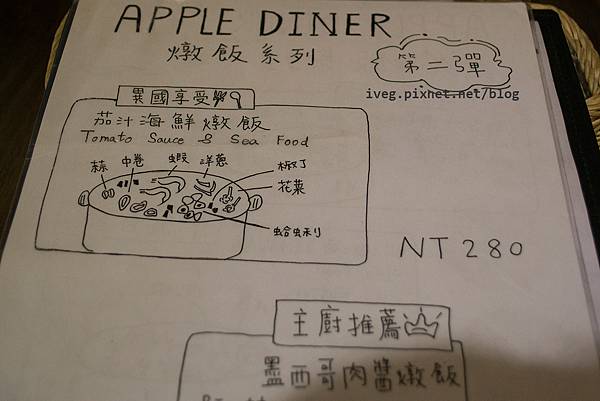 APPLE DINER
燉飯系列
第二彈
iveg.pixnet.net/blog
異國享受
茄汁海鮮燉飯
Tomato Sauce & Sea Food
蒜 中卷 蝦 洋蔥 椒丁
花菜
蛤蜊
NT 280
主廚推薦
墨西哥肉醬燉飯